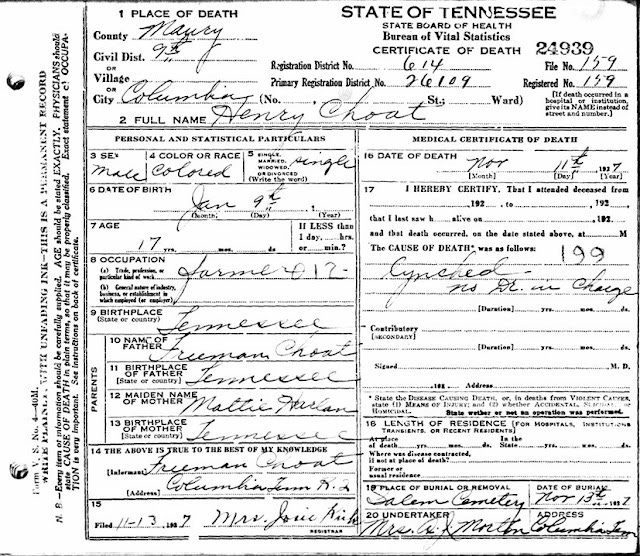 STATE OF TENNESSEE
STATE BOARD OF HEALTH
Bureau of Vital Statistics
CERTIFICATE OF DEATH 24939
1 PLACE OF DEATH
County Maury
Civil Dist. 9th
or
Village
or
City Columbia (No. St.; Ward)
Registration District No. 614 File No. 159
Primary Registration District No. 26109 Registered No. 159
[If death occurred in a
hospital or institution,
give its NAME instead of
street and number.]
2 FULL NAME Henry Choat
PERSONAL AND STATISTICAL PARTICULARS
3 SEX
Male
4 COLOR OR RACE
Colored
5 SINGLE,
MARRIED,
WIDOWED,
OR DIVORCED
(Write the word)
Single
6 DATE OF BIRTH
Jan 9th
(Month) (Day) (Year)
7 AGE
17 yrs. mos. ds.
If LESS than
1 day, hrs.
or min.?
8 OCCUPATION
(a) Trade, profession, or
particular kind of work
(b) General nature of industry,
business, or establishment in
which employed (or employer)
9 BIRTHPLACE
(State or country) Tennessee
PARENTS
10 NAME OF
FATHER Freeman Choat
11 BIRTHPLACE
OF FATHER
[State or country] Tennessee
12 MAIDEN NAME
OF MOTHER Mattie Harlan
13 BIRTHPLACE
OF MOTHER
(State or country) Tennessee
14 THE ABOVE IS TRUE TO THE BEST OF MY KNOWLEDGE
[Informant] Freeman Choat
[Address] Columbia Tenn
15
Filed 11-13 1927 Mrs. Josie Kirk
REGISTRAR
MEDICAL CERTIFICATE OF DEATH
16 DATE OF DEATH
Nov 11th 1927
[Month] (Day) (Year)
17 I HEREBY CERTIFY, That I attended deceased from
192 to 192
that I last saw h alive on 192
and that death occurred, on the date stated above, at M
The CAUSE OF DEATH* was as follows: 199
Lynched
no Dr. in Charge
[Duration] yrs. mos. ds.
Contributory
[SECONDARY]
[Duration] yrs. mos. ds.
Signed M. D.
192 Address
* State the DISEASE CAUSING DEATH, or, in deaths from VIOLENT CAUSES,
state (1) MEANS OF INJURY; and (2) whether ACCIDENTAL, SUICIDAL, or
HOMICIDAL. State wether or not an operation was performed.
18 LENGTH OF RESIDENCE (FOR HOSPITALS, INSTITUTIONS
TRANSIENTS, OR RECENT RESIDENTS)
At place
of death yrs. mos. ds.
In the
State yrs. mos. ds.
Where was disease contracted,
if not at place of death?
Former or
usual residence
19 PLACE OF BURIAL OR REMOVAL
Salem Cemetery
DATE OF BURIAL
Nov 13th 1927
20 UNDERTAKER
ADDRESS
Morton Columbia Tenn
Form V. S. No. 4
WRITE PLAINLY, WITH UNFADING INK—THIS IS A PERMANENT RECORD
N. B.—Every item of information should be carefully supplied. AGE should be stated EXACTLY. PHYSICIANS should
state CAUSE OF DEATH in plain terms, so that it may be properly classified. Exact statement of OCCUPA-
TION is very important. See instructions on back of certificate.